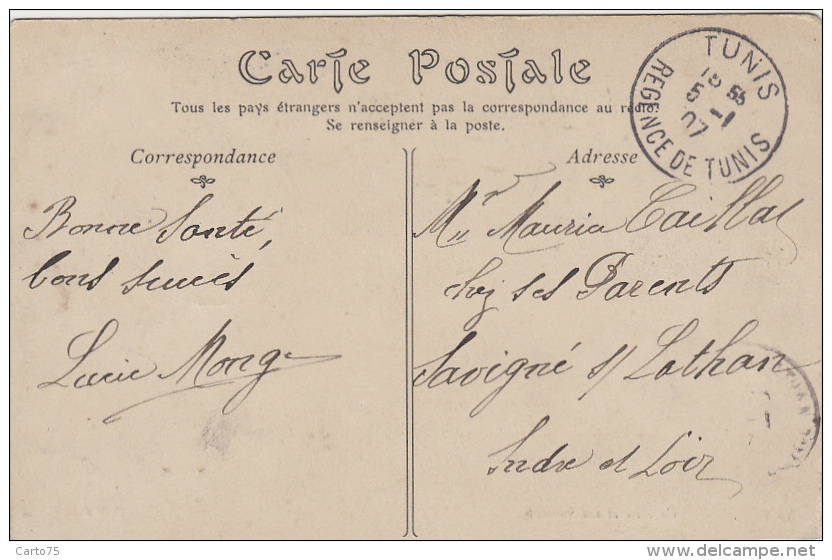 Carte Postale
Tous les pays étrangers n'acceptent pas la correspondance au recto.
Se renseigner à la poste.
TUNIS
15 55
5 -1
07
REGENCE DE TUNIS
Correspondance
Bonne Santé,
bons succès
Lucie Monge
Adresse
Mr Maurice Caillat
chez ses Parents
Savigné s/ Lathan
Indre et Loir
Carto75
© www.delcampe.net